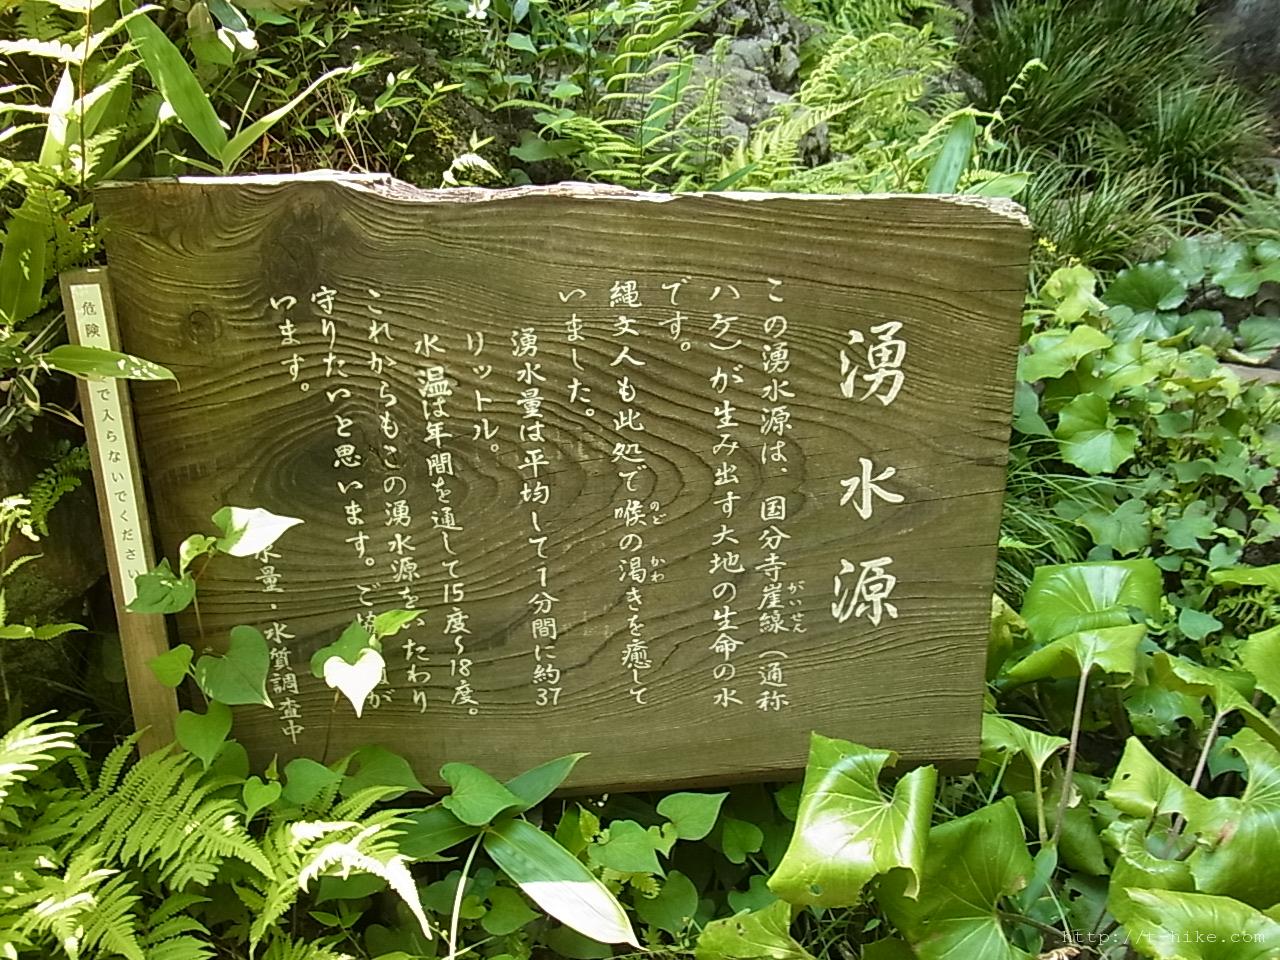 湧水源
この湧水源は、国分寺崖線（通称
がいせん
ハケ）が生み出す大地の生命の水
です。
縄文人も此処で喉の渇きを癒して
のど
かわ
いました。
湧水量は平均して1分間に約37
リットル。
水温は年間を通して15度〜18度。
これからもこの湧水源をいたわり
守りたいと思います。ご協
が
います。
水量・水質調査中
危険
で入らないでください
http://t-hike.com